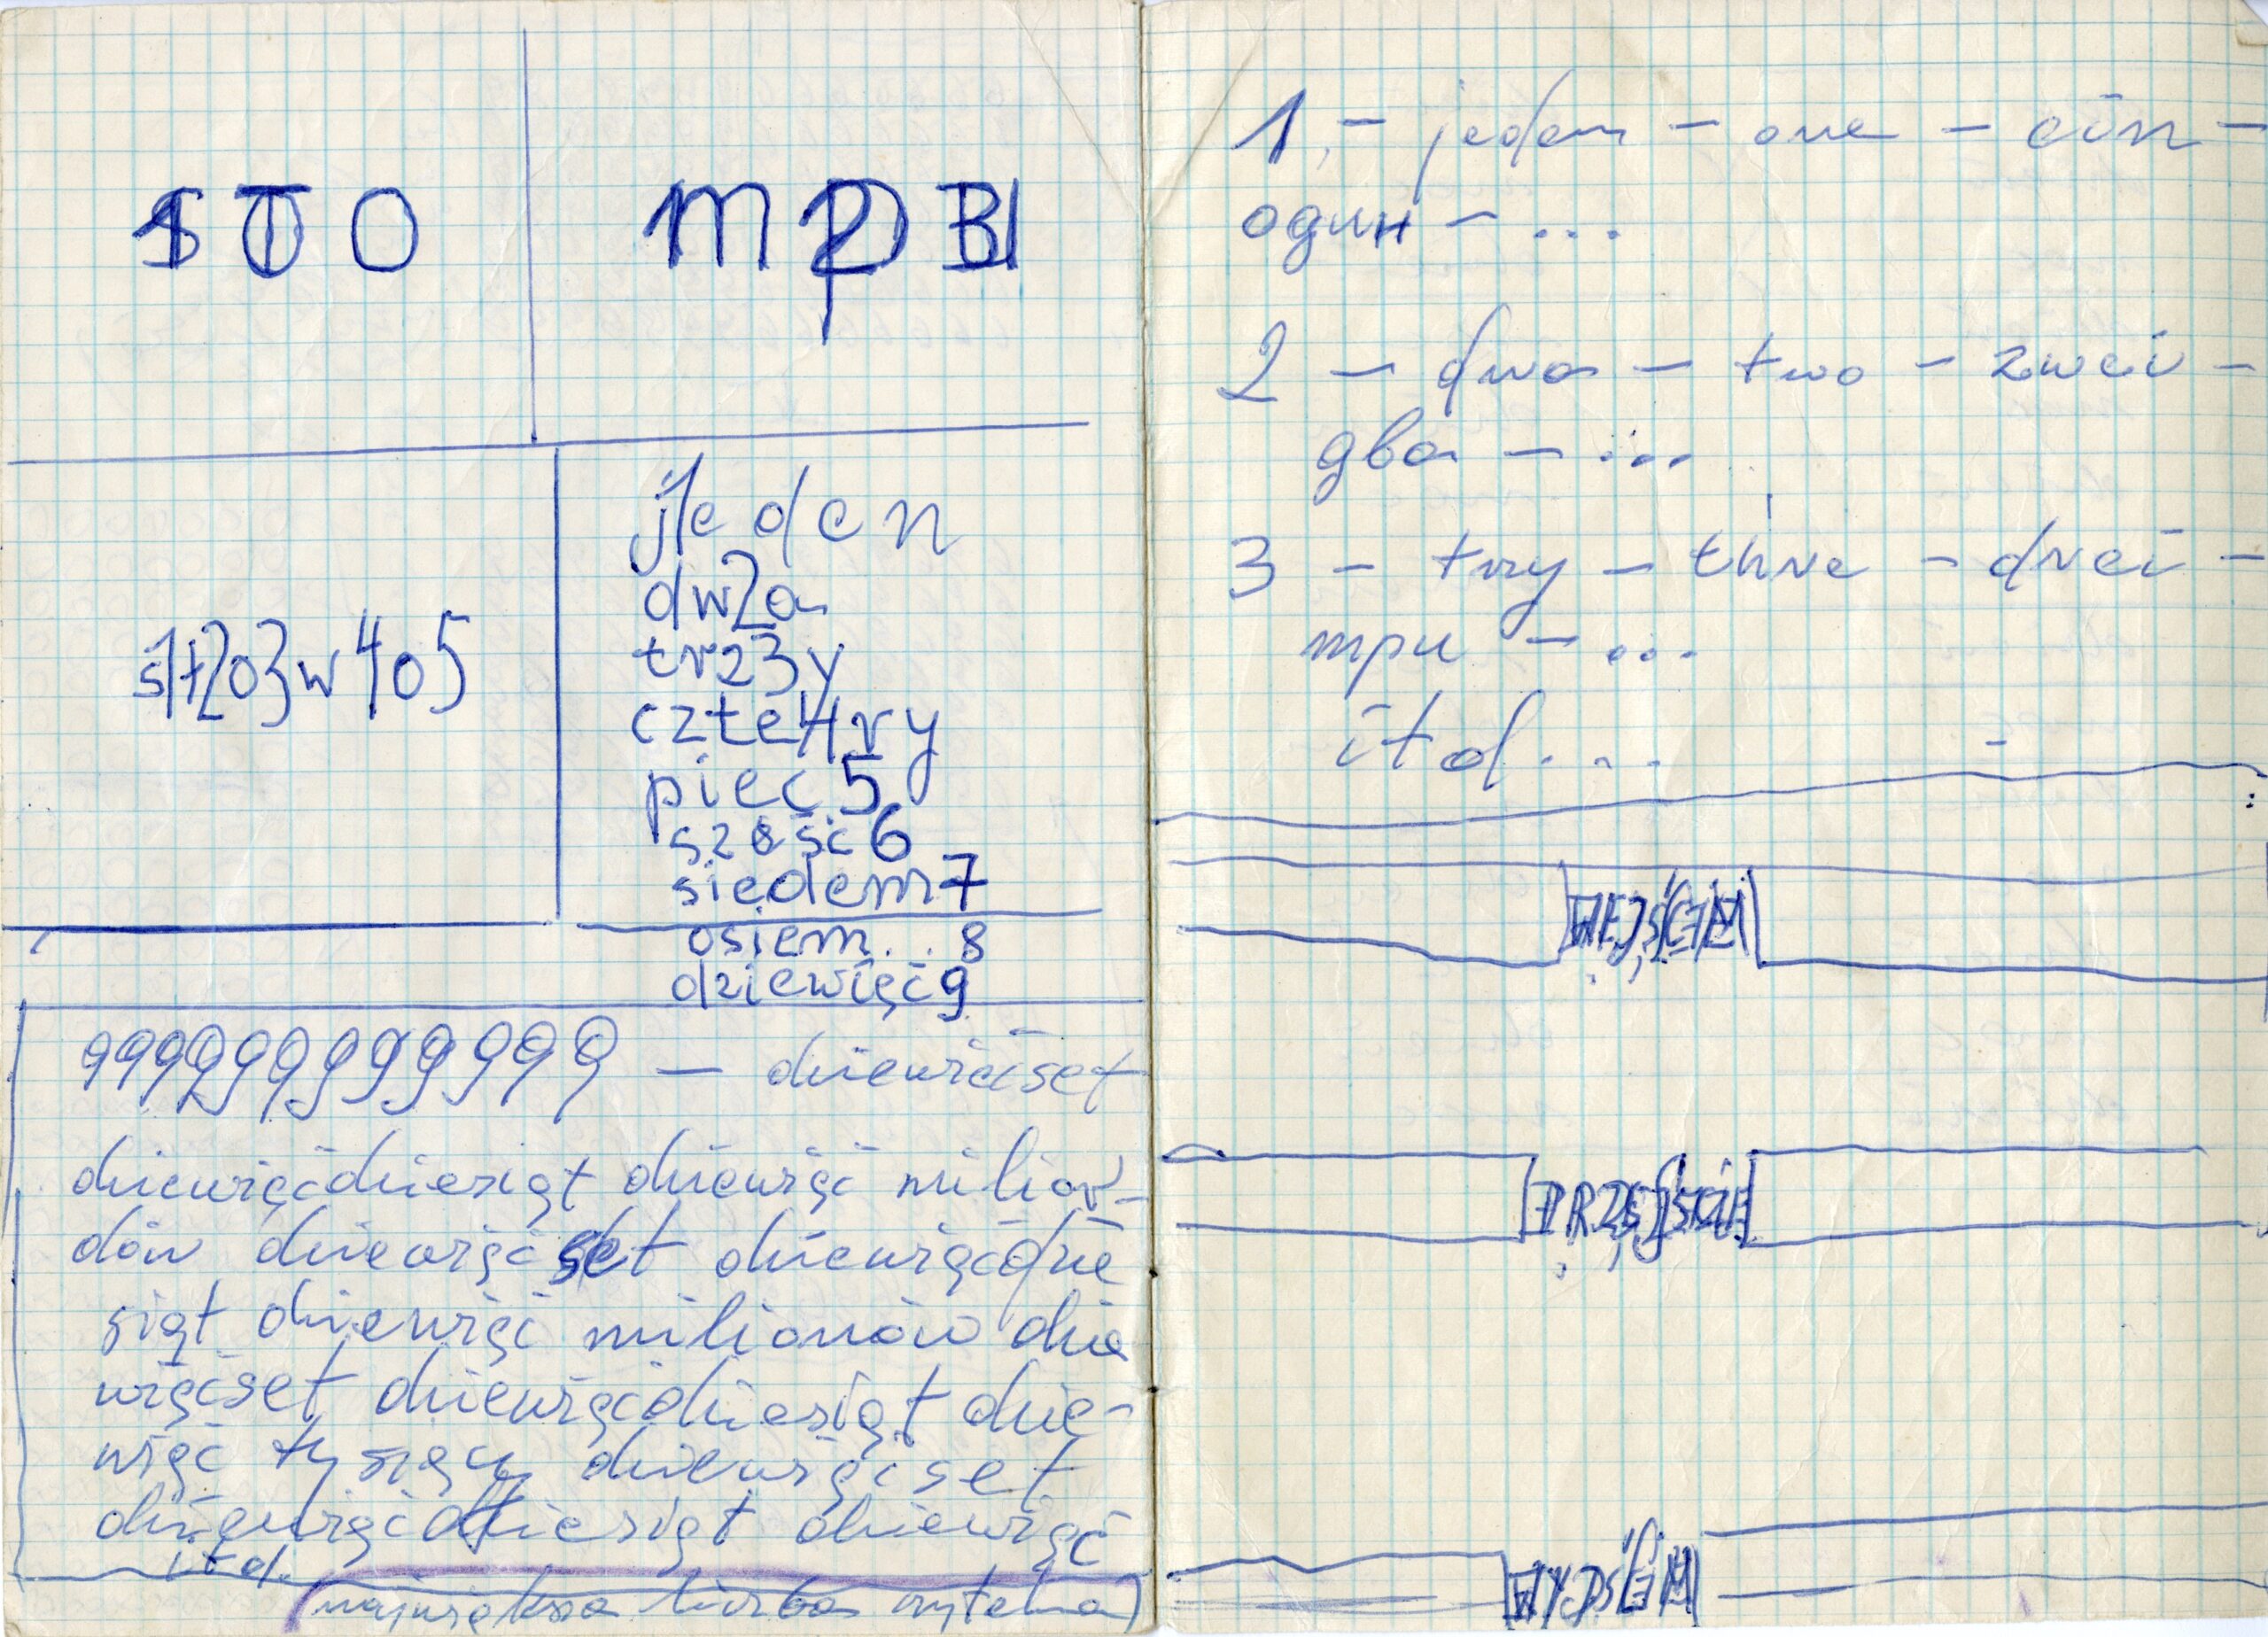 STO
три
s1t2o3w4o5
j1eden
dw2a
trz3y
czte4ry
pięć 5
sześć 6
siedem 7
osiem... 8
dziewięć 9
999999999999 — dziewięćset
dziewięćdziesiąt dziewięć miliar-
dów dziewięćset dziewięćdzie
siąt dziewięć milionów dzie
więćset dziewięćdziesiąt dzie-
więć tysięcy dziewięćset
dziewięćdziesiąt dziewięć
itd.
(największa liczba czytelna)
1. – jeden – one – ein –
один – ...
2 – dwa – two – zwei –
gba – ...
3 – trzy – thre – drei –
mpu – ...
itd...
WEJŚCIE
PRZEJŚCIE
WYJŚCIE